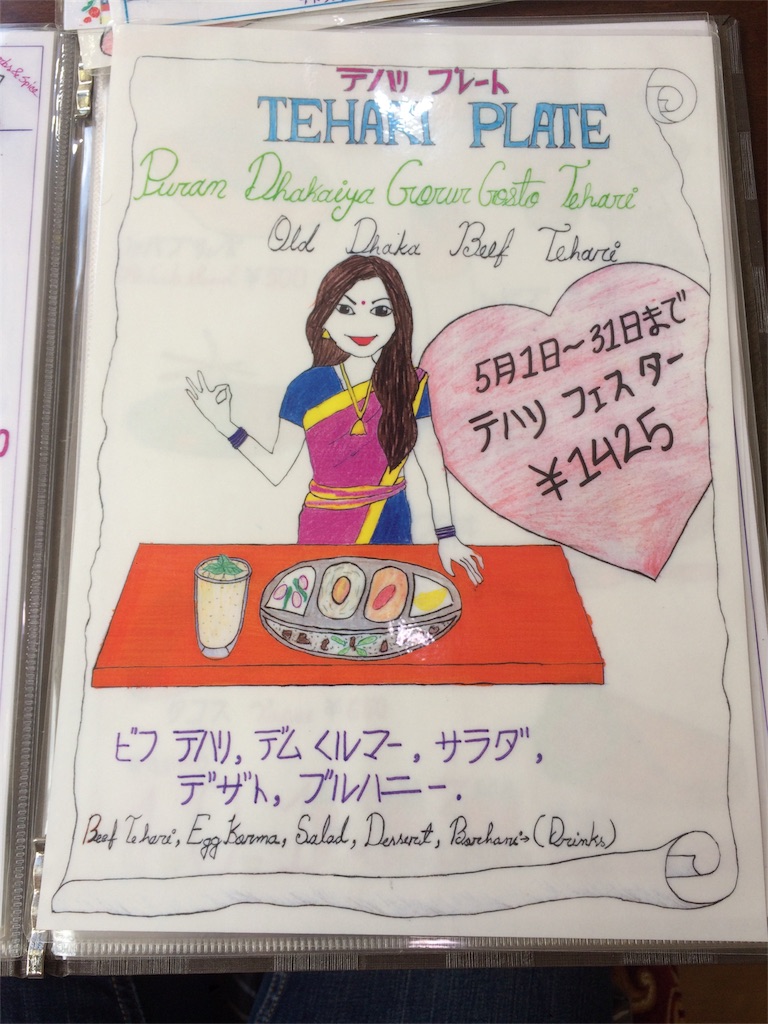 テハリ プレート
TEHARI PLATE
Puran Dhakaiya Gorur Gosto Tehari
Old Dhaka Beef Tehari
5月1日～31日まで
テハリ フェスター
¥1425
ビフ テハリ, デム くルマー, サラダ,
デザト, ブルハニー.
Beef Tehari, Egg Korma, Salad, Dessert, Borhani→(Drinks)